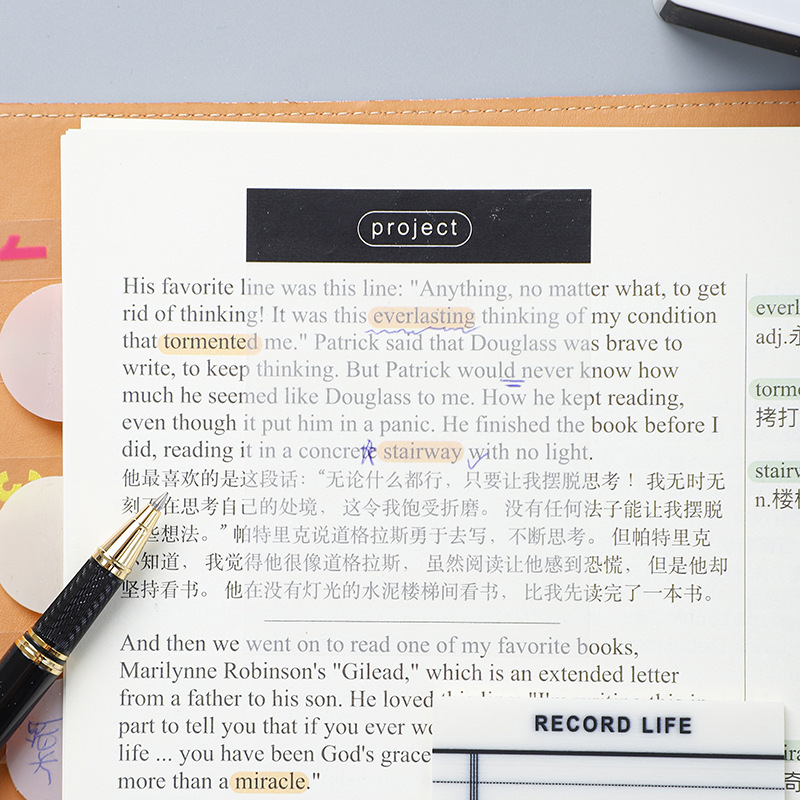 project
His favorite line was this line: "Anything, no matter what, to get
rid of thinking! It was this everlasting thinking of my condition
that tormented me." Patrick said that Douglass was brave to
write, to keep thinking. But Patrick would never know how
much he seemed like Douglass to me. How he kept reading,
even though it put him in a panic. He finished the book before I
did, reading it in a concrete stairway with no light.
他最喜欢的是这段话：“无论什么都行，只要让我摆脱思考！我无时无
刻不在思考自己的处境，这令我饱受折磨。没有任何法子能让我摆脱
些想法。”帕特里克说道格拉斯勇于去写，不断思考。但帕特里克
知道，我觉得他很像道格拉斯，虽然阅读让他感到恐慌，但是他却
坚持看书。他在没有灯光的水泥楼梯间看书，比我先读完了一本书。
And then we went on to read one of my favorite books,
Marilynne Robinson's "Gilead," which is an extended letter
from a father to his son. He loved this line: "I'm writing this in
part to tell you that if you ever
life ... you have been God's grace
more than a miracle."
RECORD LIFE
adj.
拷打
n.楼